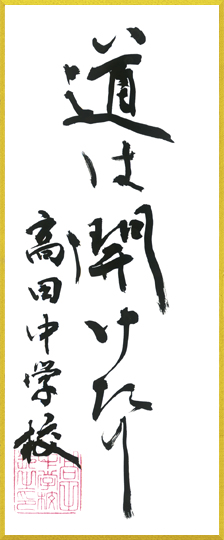 道は開けたり
高田中学校